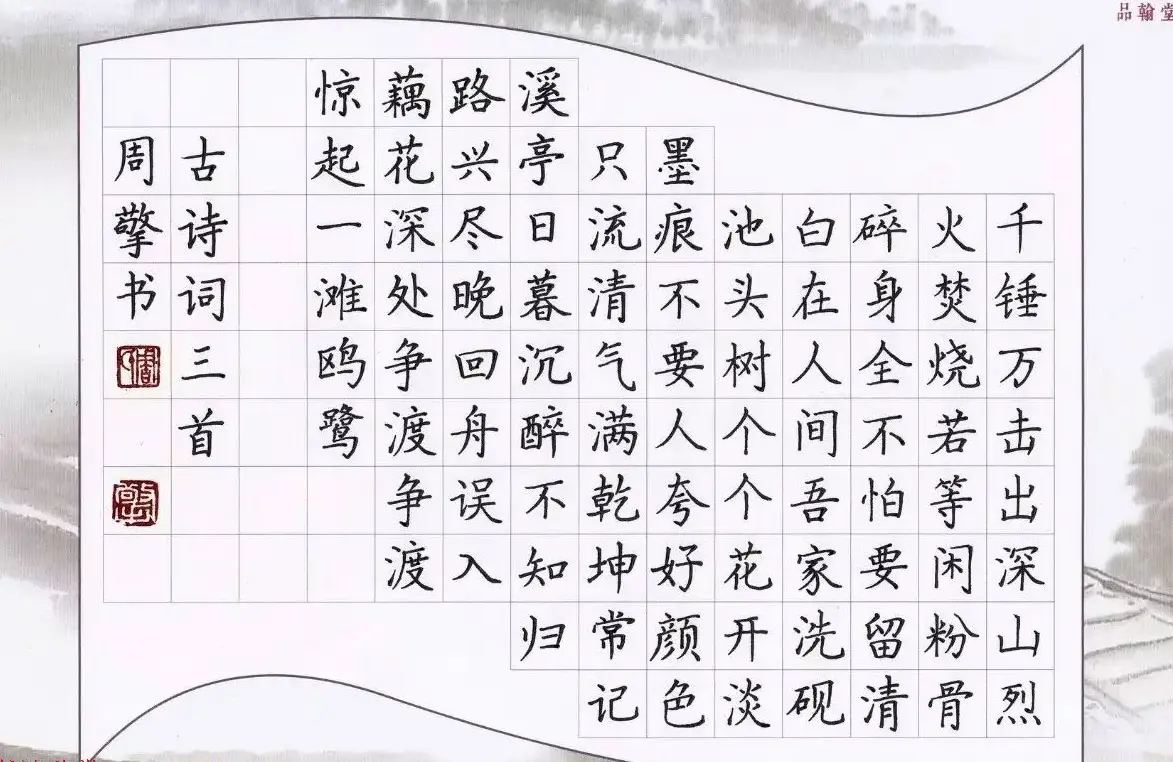 品翰堂
千锤万击出深山烈
火焚烧若等闲粉骨
碎身全不怕要留清
白在人间吾家洗砚
池头树个个花开淡
墨痕不要人夸好颜色
只流清气满乾坤常记
溪亭日暮沉醉不知归
路兴尽晚回舟误入
藕花深处争渡争渡
惊起一滩鸥鹭
古诗词三首
周擎书